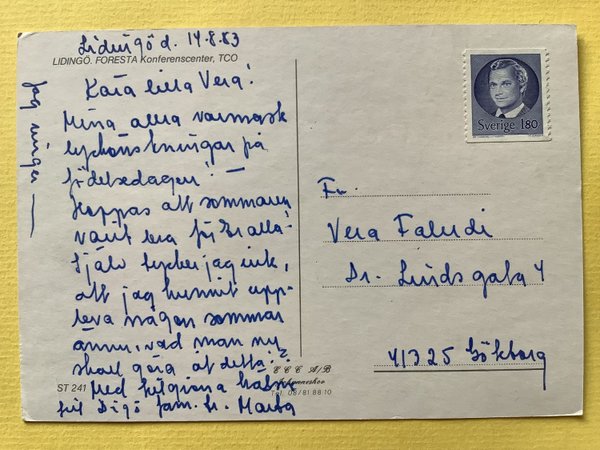 Lidingö d. 14.8.83
LIDINGÖ. FORESTA Konferenscenter, TCO
Kära lilla Vera!
Mina allra varmaste
lyckönskningar på
födelsedagen! —
Hoppas att sommaren
varit bra för Er alla!
Själv tycker jag ,
att jag hunnit upp-
leva någon sommar
ännu, vad man nu
skall göra åt detta!?
Med hälsn.
till fam. fr. Marta
Jag ringer —
ST 241
E C C A/B
Johanneshov
Tel. 08/81 88 10
Sverige 1.80
Fr.
Vera Faludi
Dr. Lindsgata 4
41325 Göteborg